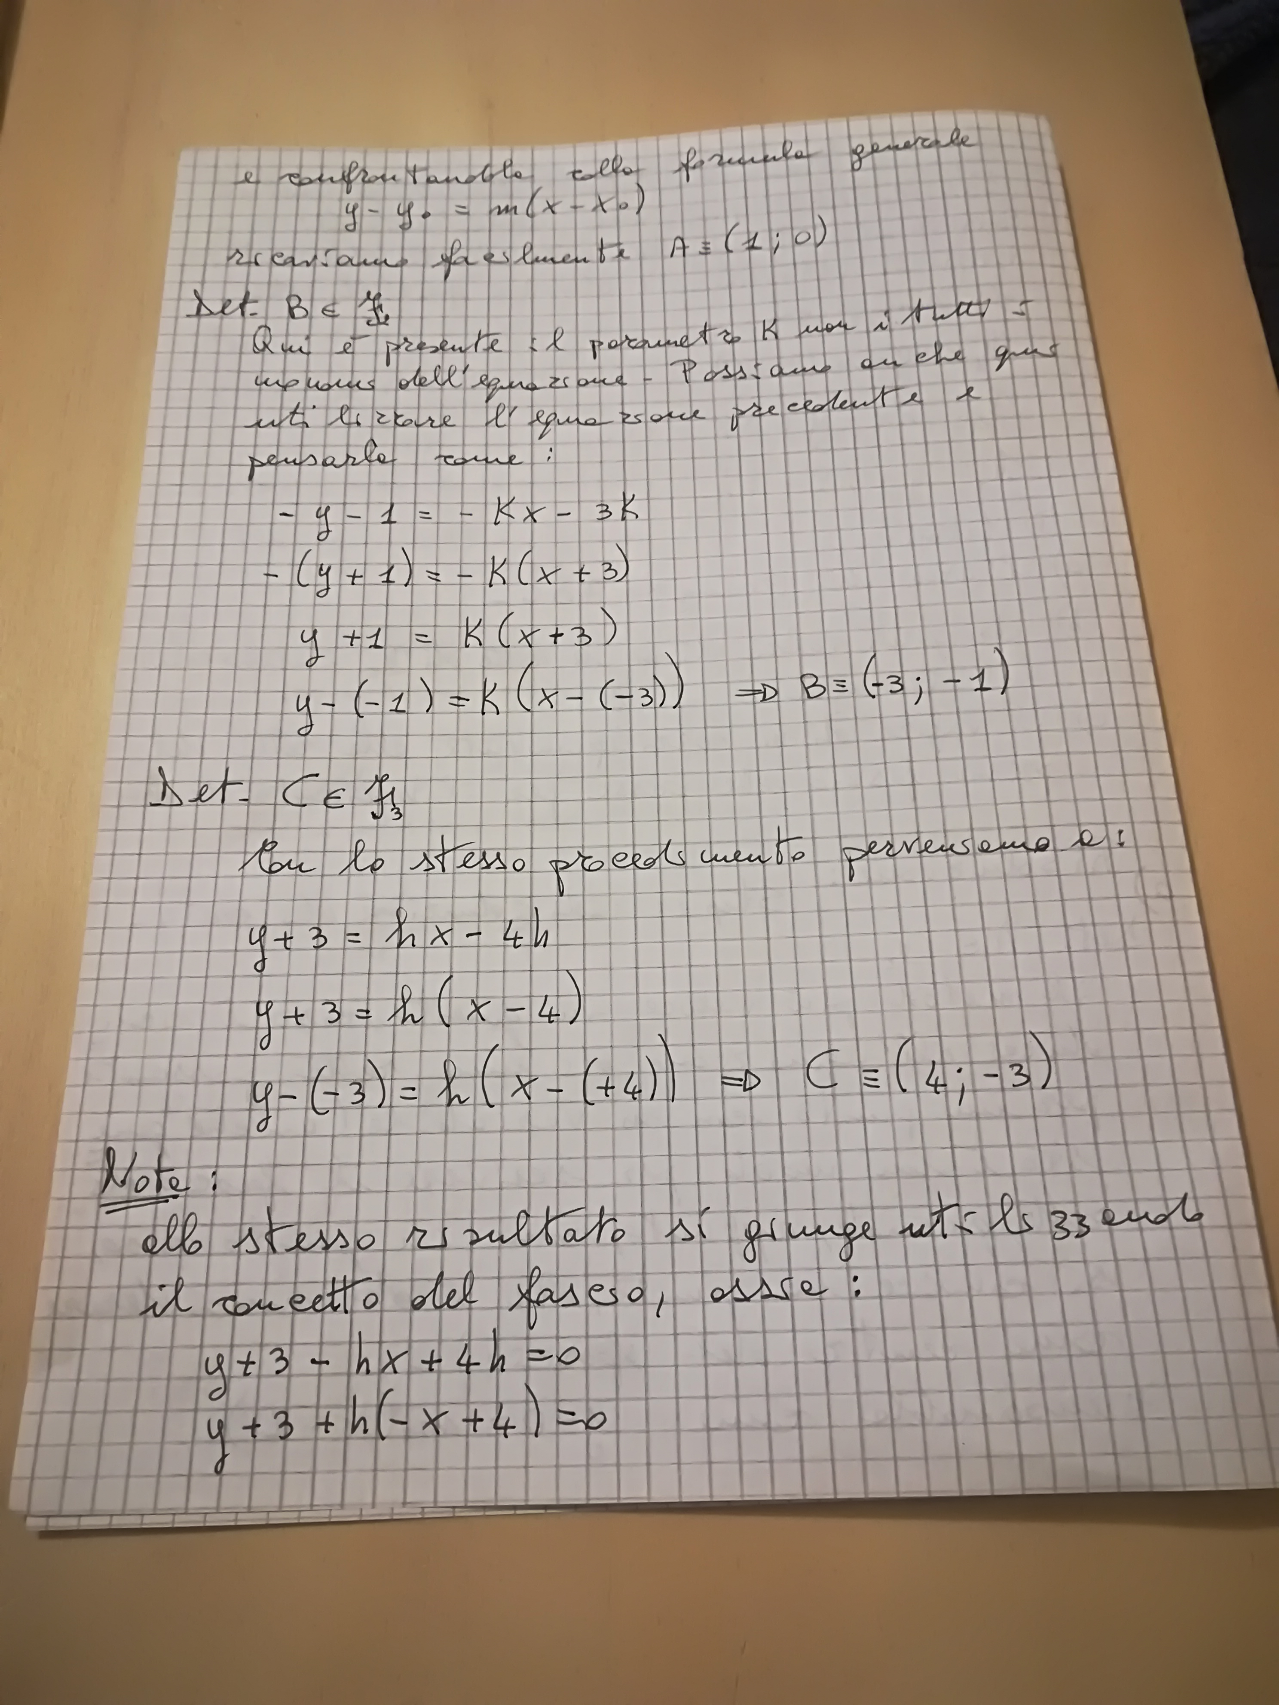 e confrontandola colla formula generale
y - y₀ = m(x - x₀)
ricaviamo facilmente A ≡ (1 ; 0)
Det. B ∈ F₂
Qui è presente il parametro K non i tutti i
monomi dell'equazione - Possiamo anche qui
utilizzare l'equazione precedente e
pensarla come :
- y - 1 = - Kx - 3K
- (y + 1) = - K(x + 3)
y + 1 = K(x+3)
y - (-1) = K(x - (-3)) ⇒ B ≡ (-3 ; -1)
Det. C ∈ F₃
Con lo stesso procedimento perveniamo a :
y + 3 = hx - 4h
y + 3 = h(x - 4)
y - (-3) = h(x - (+4)) ⇒ C ≡ (4 ; -3)
Nota :
allo stesso risultato si giunge utilizzando
il concetto del fascio, ossia :
y + 3 - hx + 4h = 0
y + 3 + h(-x + 4) = 0